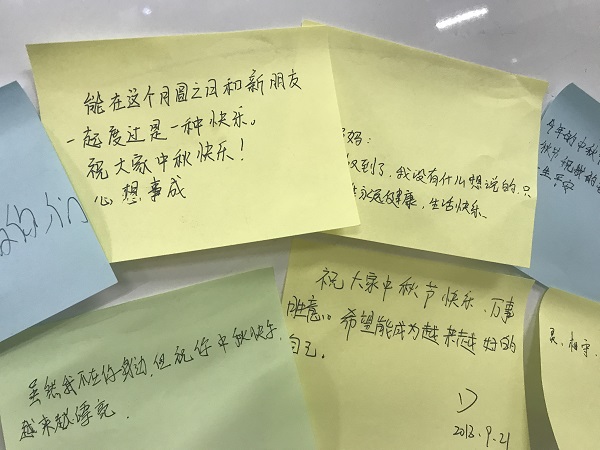 能在这个月圆之日和新朋友
一起度过是一种快乐。
祝大家中秋快乐!
心想事成
妈:
收到了,我没有什么想说的.只
永远健康,生活快乐.
今年的中秋
秋节祝
们
虽然我不在你身边,但祝你中秋快乐,
越来越漂亮.
祝大家中秋节快乐、万事
胜意。希望能成为越来越好的
自己.
D
2013.9.21
相守